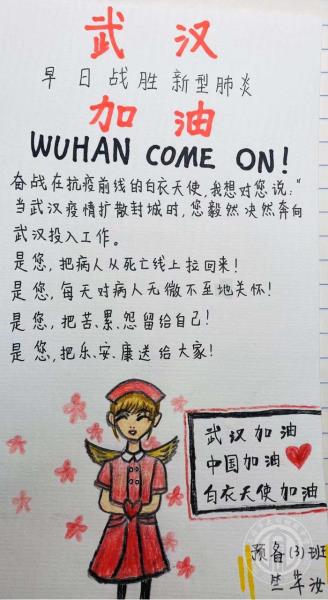 武汉
早日战胜新型肺炎
加油
WUHAN COME ON!
奋战在抗疫前线的白衣天使,我想对您说:"
当武汉疫情扩散封城时,您毅然决然奔向
武汉投入工作。
是您,把病人从死亡线上拉回来!
是您,每天对病人无微不至地关怀!
是您,把苦、累、怨留给自己!
是您,把乐、安、康送给大家!
武汉加油
中国加油
白衣天使加油
预备(3)班